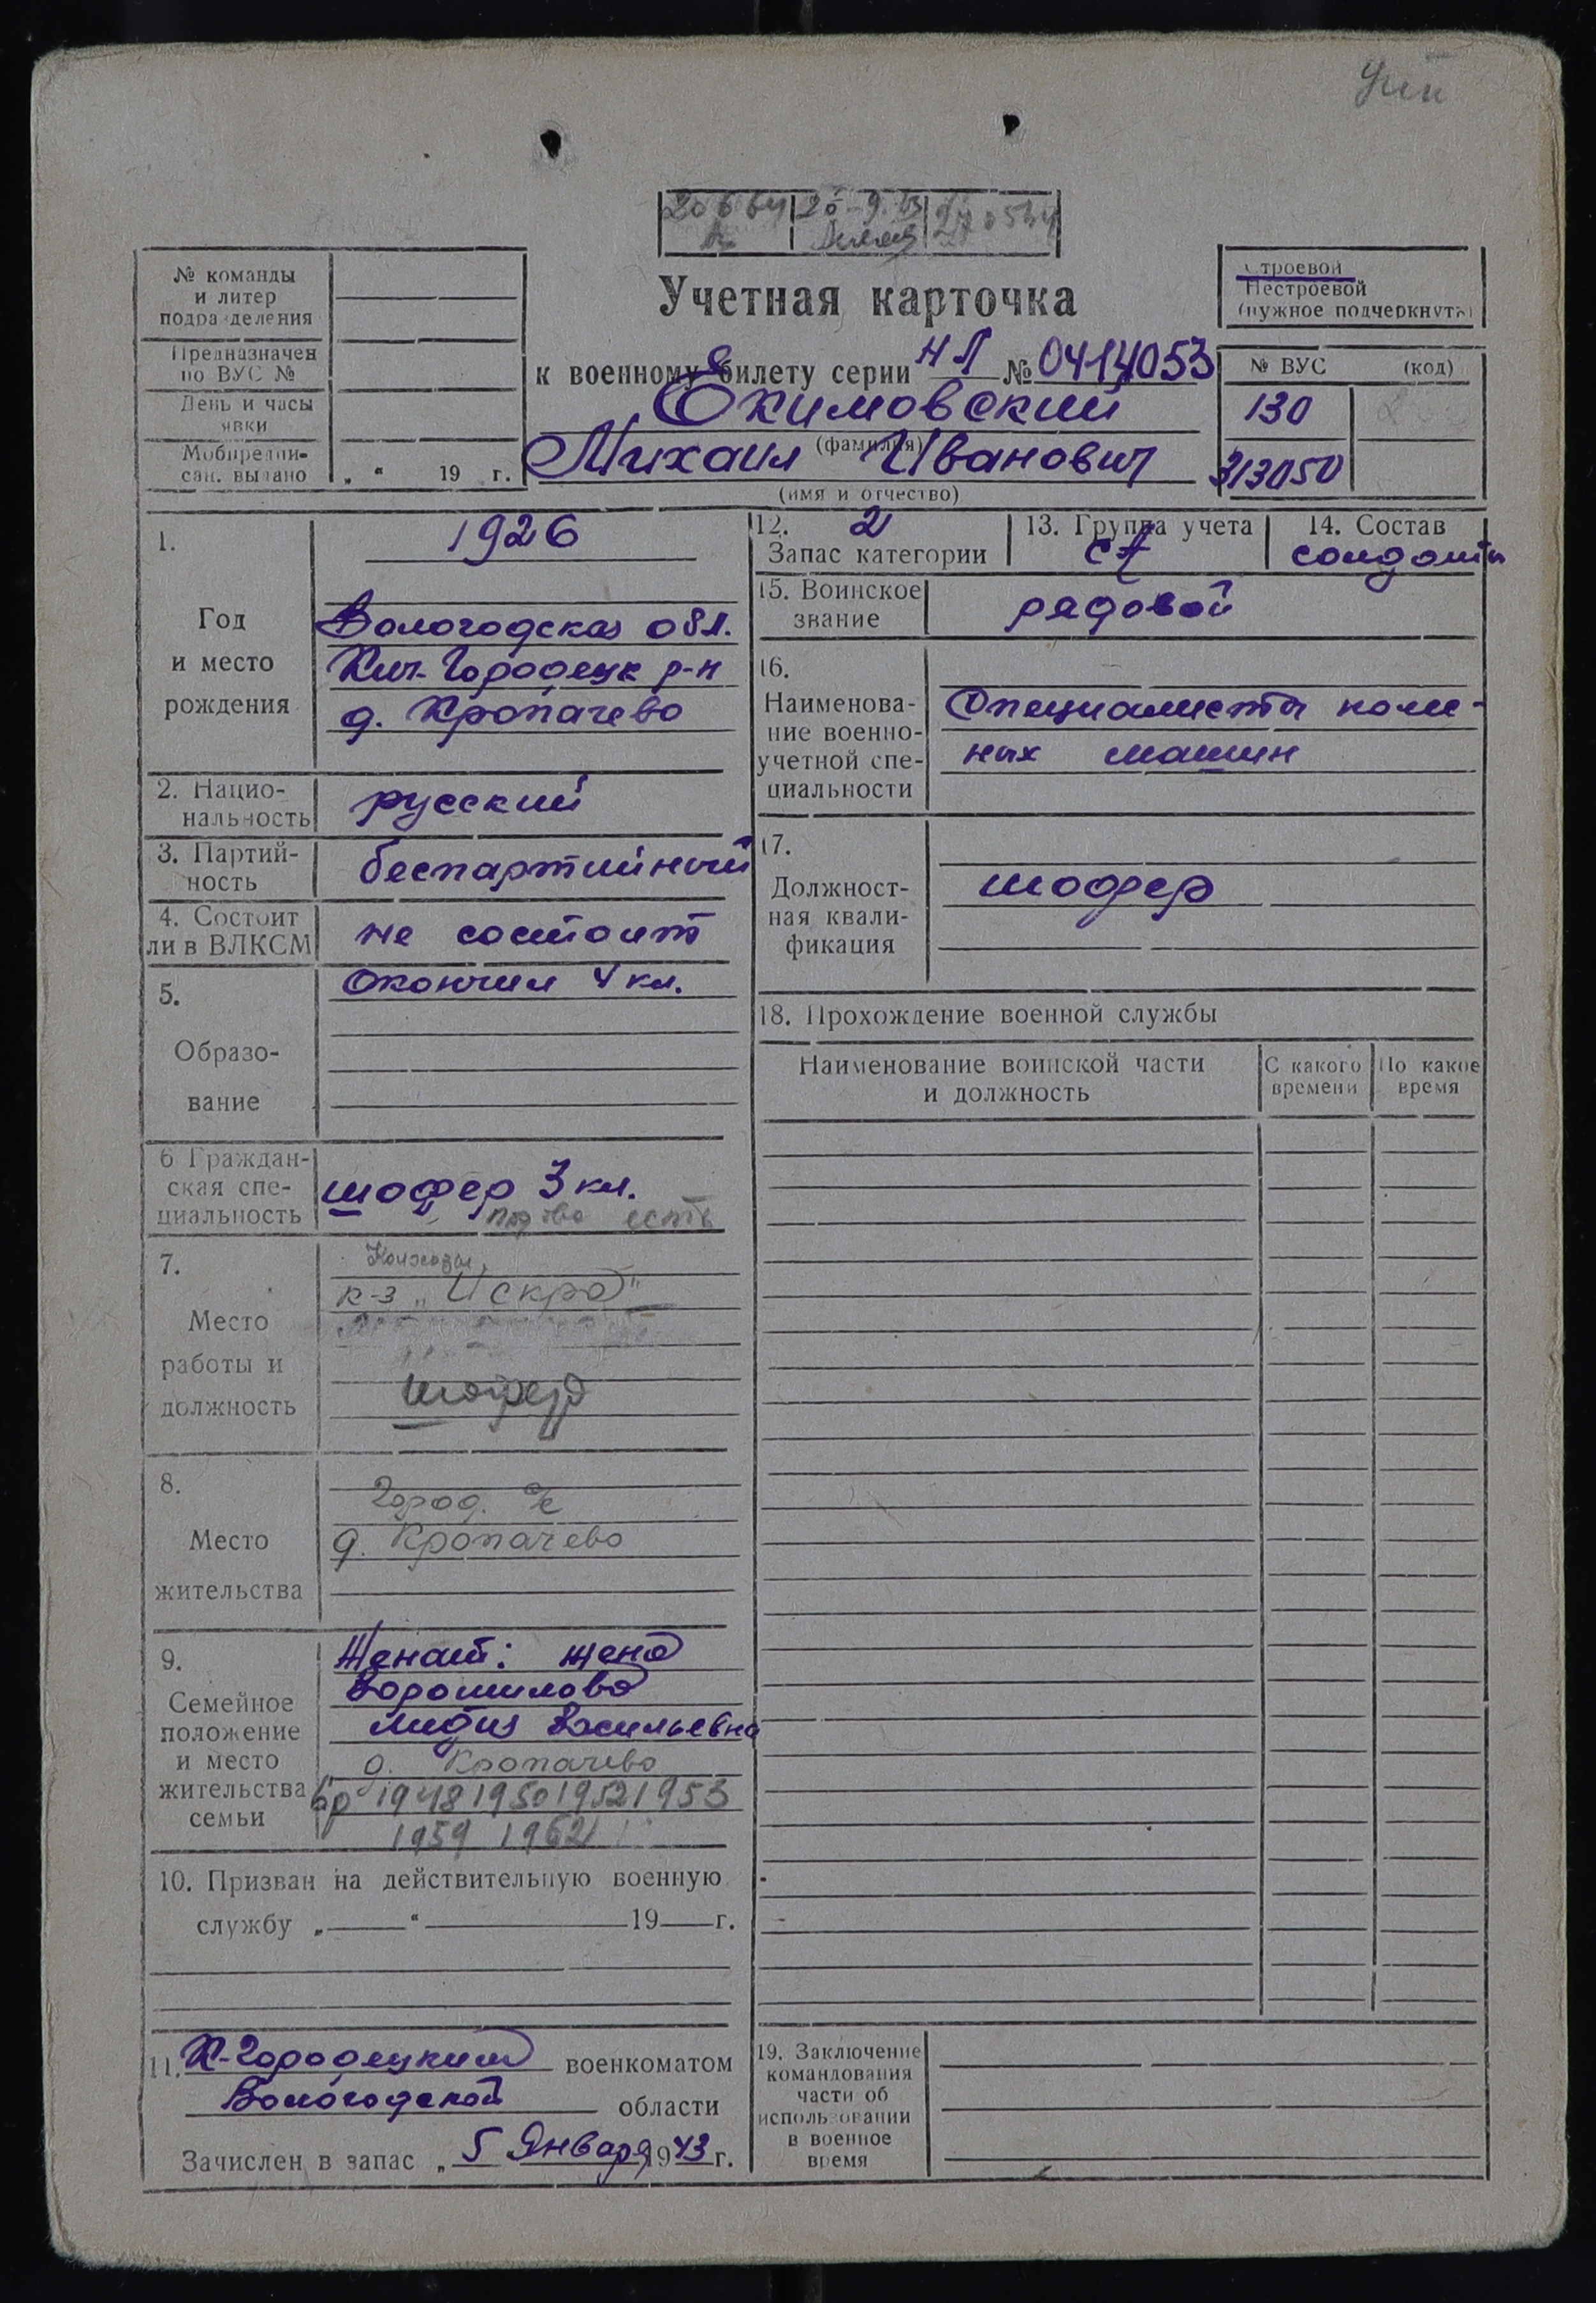 Учетная карточка
№ команды
и литер
подразделения
Предназначен
по ВУС №
День и часы
явки
Мобпредпи-
сан. выдано
„ “ 19 г.
к военному билету серии НЛ № 0414053
Екимовский
(фамилия)
Михаил Иванович
(имя и отчество)
Строевой
Нестроевой
(нужное подчеркнуть)
№ ВУС (код)
130
313050
1.
Год
и место
рождения
1926
Вологодская обл.
Кич-Городецк р-н
д. Кропачево
2. Нацио-
нальность
русский
3. Партий-
ность
беспартийный
4. Состоит
ли в ВЛКСМ
не состоит
5.
Образо-
вание
Окончил 4 кл.
6 Граждан-
ская спе-
циальность
шофер 3 кл.
права есть
7.
Место
работы и
должность
к-з „Искра"
шофер
8.
Место
жительства
Город. с/с
д. Кропачево
9.
Семейное
положение
и место
жительства
семьи
Женат: жена
Ворошилова
Лидия Васильевна
д. Кропачево
1948 1950 1952 1953
1959 1962
10. Призван на действительную военную
службу „ “ 19 г.
11. К-Городецким военкоматом
Вологодской области
Зачислен в запас „ 5 Января 1943 г.
12. 2
Запас категории
13. Группа учета
СА
14. Состав
солдаты
15. Воинское
звание
рядовой
16.
Наименова-
ние военно-
учетной спе-
циальности
Специалисты колес-
ных машин
17.
Должност-
ная квали-
фикация
шофер
18. Прохождение военной службы
Наименование воинской части
и должность
С какого
времени
По какое
время
19. Заключение
командования
части об
использовании
в военное
время